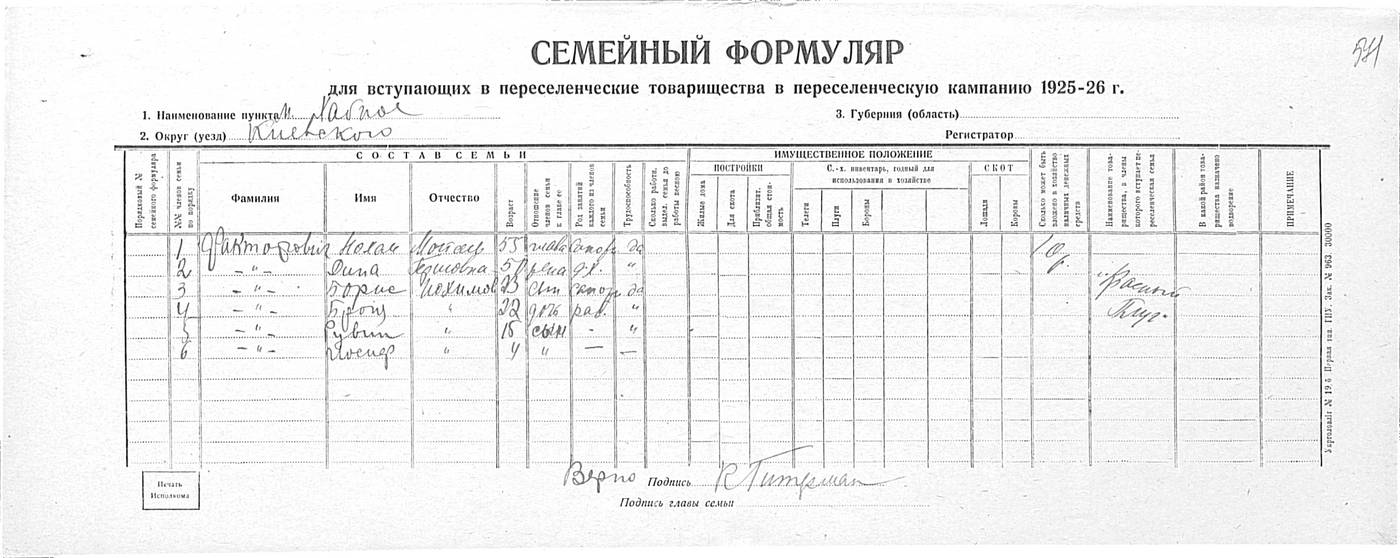 СЕМЕЙНЫЙ ФОРМУЛЯР
571
для вступающих в переселенческие товарищества в переселенческую кампанию 1925-26 г.
1. Наименование пункта м. Хабное
3. Губерния (область)
2. Округ (уезд) Киевского
Регистратор
СОСТАВ СЕМЬИ
ИМУЩЕСТВЕННОЕ ПОЛОЖЕНИЕ
Порядковый № семейного формуляра
№№ членов семьи по порядку
Фамилия
Имя
Отчество
Возраст
Отношение членов семьи к главе ее
Род занятий каждого из членов семьи
Трудоспособность
Сколько работн. выдел. семья до работы весною
ПОСТРОЙКИ
Жилые дома
Для скота
Приблизит. общая стоимость
С.-х. инвентарь, годный для использования в хозяйстве
Телеги
Плуги
Бороны
СКОТ
Лошади
Коровы
Сколько может быть вложено в хозяйство наличных денежных средств
Наименование товарищества, в члены которого вступает переселенческая семья
В какой район товарищества назначено водворение
ПРИМЕЧАНИЕ
1 Факторович 55 глава сапож да
2 –"– Дина Гершовна 50 жена д.х. "
3 –"– Борис 23 сын сапож да
4 –"– " 22 дочь раб. "
5 –"– Рувин " 15 сын - "
6 –"– Иосиф " 4 " — —
10 р.
Плуг
Печать
Исполкома
Верно Подпись Питерман
Подпись главы семьи
Укрголовліт № 19.6 Первая тип. ГПУ. Зак. № 963. 30000